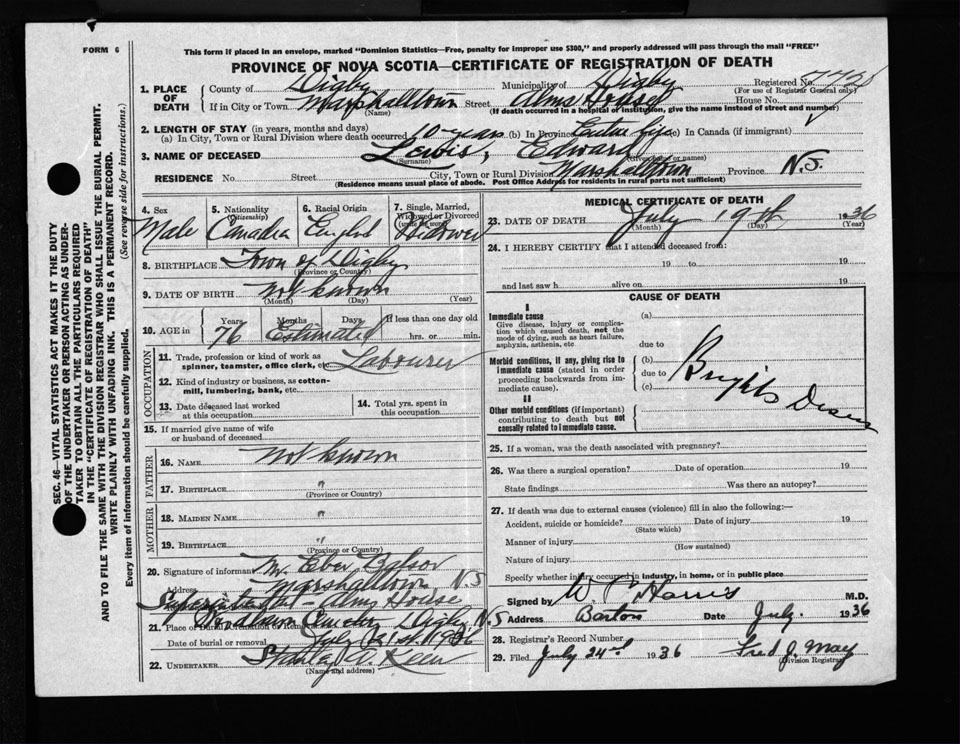 FORM 6
This form if placed in an envelope, marked "Dominion Statistics—Free, penalty for improper use $300," and properly addressed will pass through the mail "FREE"
PROVINCE OF NOVA SCOTIA—CERTIFICATE OF REGISTRATION OF DEATH
1. PLACE OF DEATH
County of Digby Municipality of Digby Registered No.
(For use of Registrar General only)
If in City or Town Marshalltown Street Alms House House No.
(Name) (If death occurred in a hospital or institution, give the name instead of street and number)
2. LENGTH OF STAY (in years, months and days)
(a) In City, Town or Rural Division where death occurred 10 years (b) In Province Entire life (c) In Canada (if immigrant)
3. NAME OF DECEASED Lewis, Edward
(Surname) (Given name or names)
RESIDENCE No. Street City, Town or Rural Division Marshalltown Province N.S.
(Residence means usual place of abode. Post Office Address for residents in rural parts not sufficient)
4. Sex Male
5. Nationality (Citizenship) Canadian
6. Racial Origin English
7. Single, Married, Widowed or Divorced (write the word) Widower
8. BIRTHPLACE Town of Digby
(Province or Country)
9. DATE OF BIRTH not known
(Month) (Day) (Year)
10. AGE in Years 76 Months Days Estimated If less than one day old hrs. or min.
OCCUPATION
11. Trade, profession or kind of work as spinner, teamster, office clerk, etc. Labourer
12. Kind of industry or business, as cotton-mill, lumbering, bank, etc.
13. Date deceased last worked at this occupation
14. Total yrs. spent in this occupation
15. If married give name of wife or husband of deceased
FATHER
16. NAME not known
17. BIRTHPLACE "
(Province or Country)
MOTHER
18. MAIDEN NAME "
19. BIRTHPLACE "
(Province or Country)
20. Signature of informant Mr. Eber
Address Marshalltown N.S
Superintendent Alms House
21. Place of Burial, Cremation or Removal Digby N.S
Date of burial or removal July 21st 1936
22. UNDERTAKER Stanley
(Name and address)
MEDICAL CERTIFICATE OF DEATH
23. DATE OF DEATH July 19th 1936
(Month) (Day) (Year)
24. I HEREBY CERTIFY that I attended deceased from:
19 to 19
and last saw h alive on 19
CAUSE OF DEATH
I
Immediate cause
Give disease, injury or complication which caused death, not the mode of dying, such as heart failure, asphyxia, asthenia, etc
Morbid conditions, if any, giving rise to immediate cause (stated in order proceeding backwards from immediate cause).
II
Other morbid conditions (if important) contributing to death but not causally related to immediate cause.
(a)
due to
(b)
due to
(c)
Brights Disease
25. If a woman, was the death associated with pregnancy?
26. Was there a surgical operation? Date of operation 19
State findings Was there an autopsy?
27. If death was due to external causes (violence) fill in also the following:—
Accident, suicide or homicide? Date of injury 19
(State which)
Manner of injury
(How sustained)
Nature of injury
Specify whether injury occurred in industry, in home, or in public place
Signed by W. Harris M.D.
Address Barton Date July 1936
28. Registrar's Record Number
29. Filed July 24th 1936 Fred J. May
(Division Registrar)
SEC. 46—VITAL STATISTICS ACT MAKES IT THE DUTY
OF THE UNDERTAKER OR PERSON ACTING AS UNDER-
TAKER TO OBTAIN ALL THE PARTICULARS REQUIRED
IN THE "CERTIFICATE OF REGISTRATION OF DEATH"
AND TO FILE THE SAME WITH THE DIVISION REGISTRAR WHO SHALL ISSUE THE BURIAL PERMIT.
WRITE PLAINLY WITH UNFADING INK. THIS IS A PERMANENT RECORD.
Every item of information should be carefully supplied. (See reverse side for instructions.)